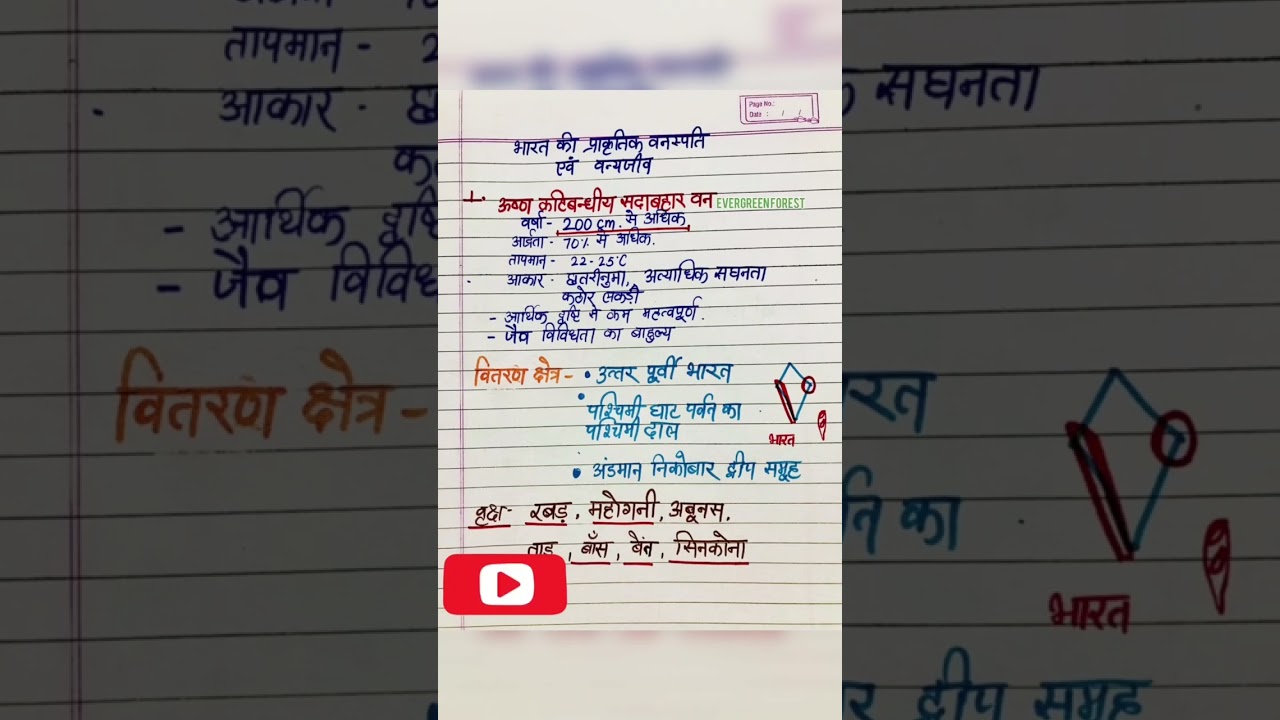 Page No.:
Date : / /
भारत की प्राकृतिक वनस्पति
एवं वन्यजीव
1. ऊष्ण कटिबन्धीय सदाबहार वन EVERGREEN FOREST
वर्षा - 200 cm. से अधिक
आर्द्रता - 70% से अधिक.
तापमान - 22-25°C
आकार - छतरीनुमा, अत्याधिक सघनता
कठोर लकड़ी
- आर्थिक दृष्टि से कम महत्वपूर्ण.
- जैव विविधता का बाहुल्य
वितरण क्षेत्र - • उत्तर पूर्वी भारत
• पश्चिमी घाट पर्वत का
पश्चिमी ढाल
भारत
• अंडमान निकोबार द्वीप समूह
वृक्ष - रबड़, महोगनी, अबूनस,
ताड़, बाँस, बेंत, सिनकोना